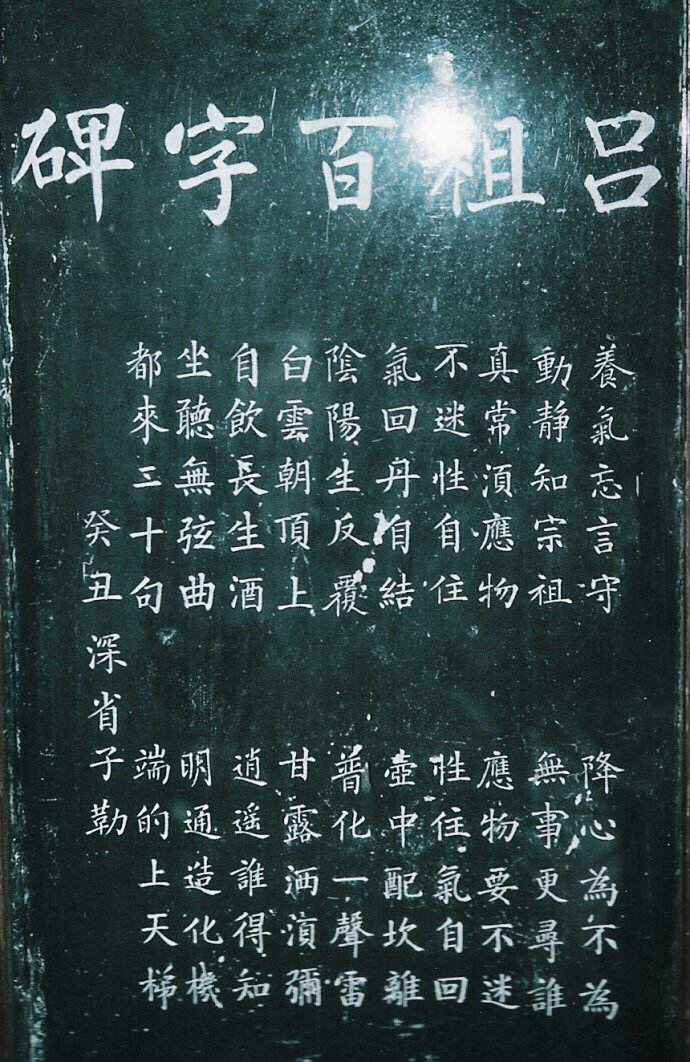 吕祖百字碑
養氣忘言守 降心為不為
動靜知宗祖 無事更尋誰
真常湏應物 應物要不迷
不迷性自住 性住氣自回
氣回丹自結 壺中配坎離
陰陽生反覆 普化一聲雷
白雲朝頂上 甘露洒湏彌
自飲長生酒 逍遥誰得知
坐聽無弦曲 明通造化機
都來二十句 端的上天梯
癸丑深省子勒